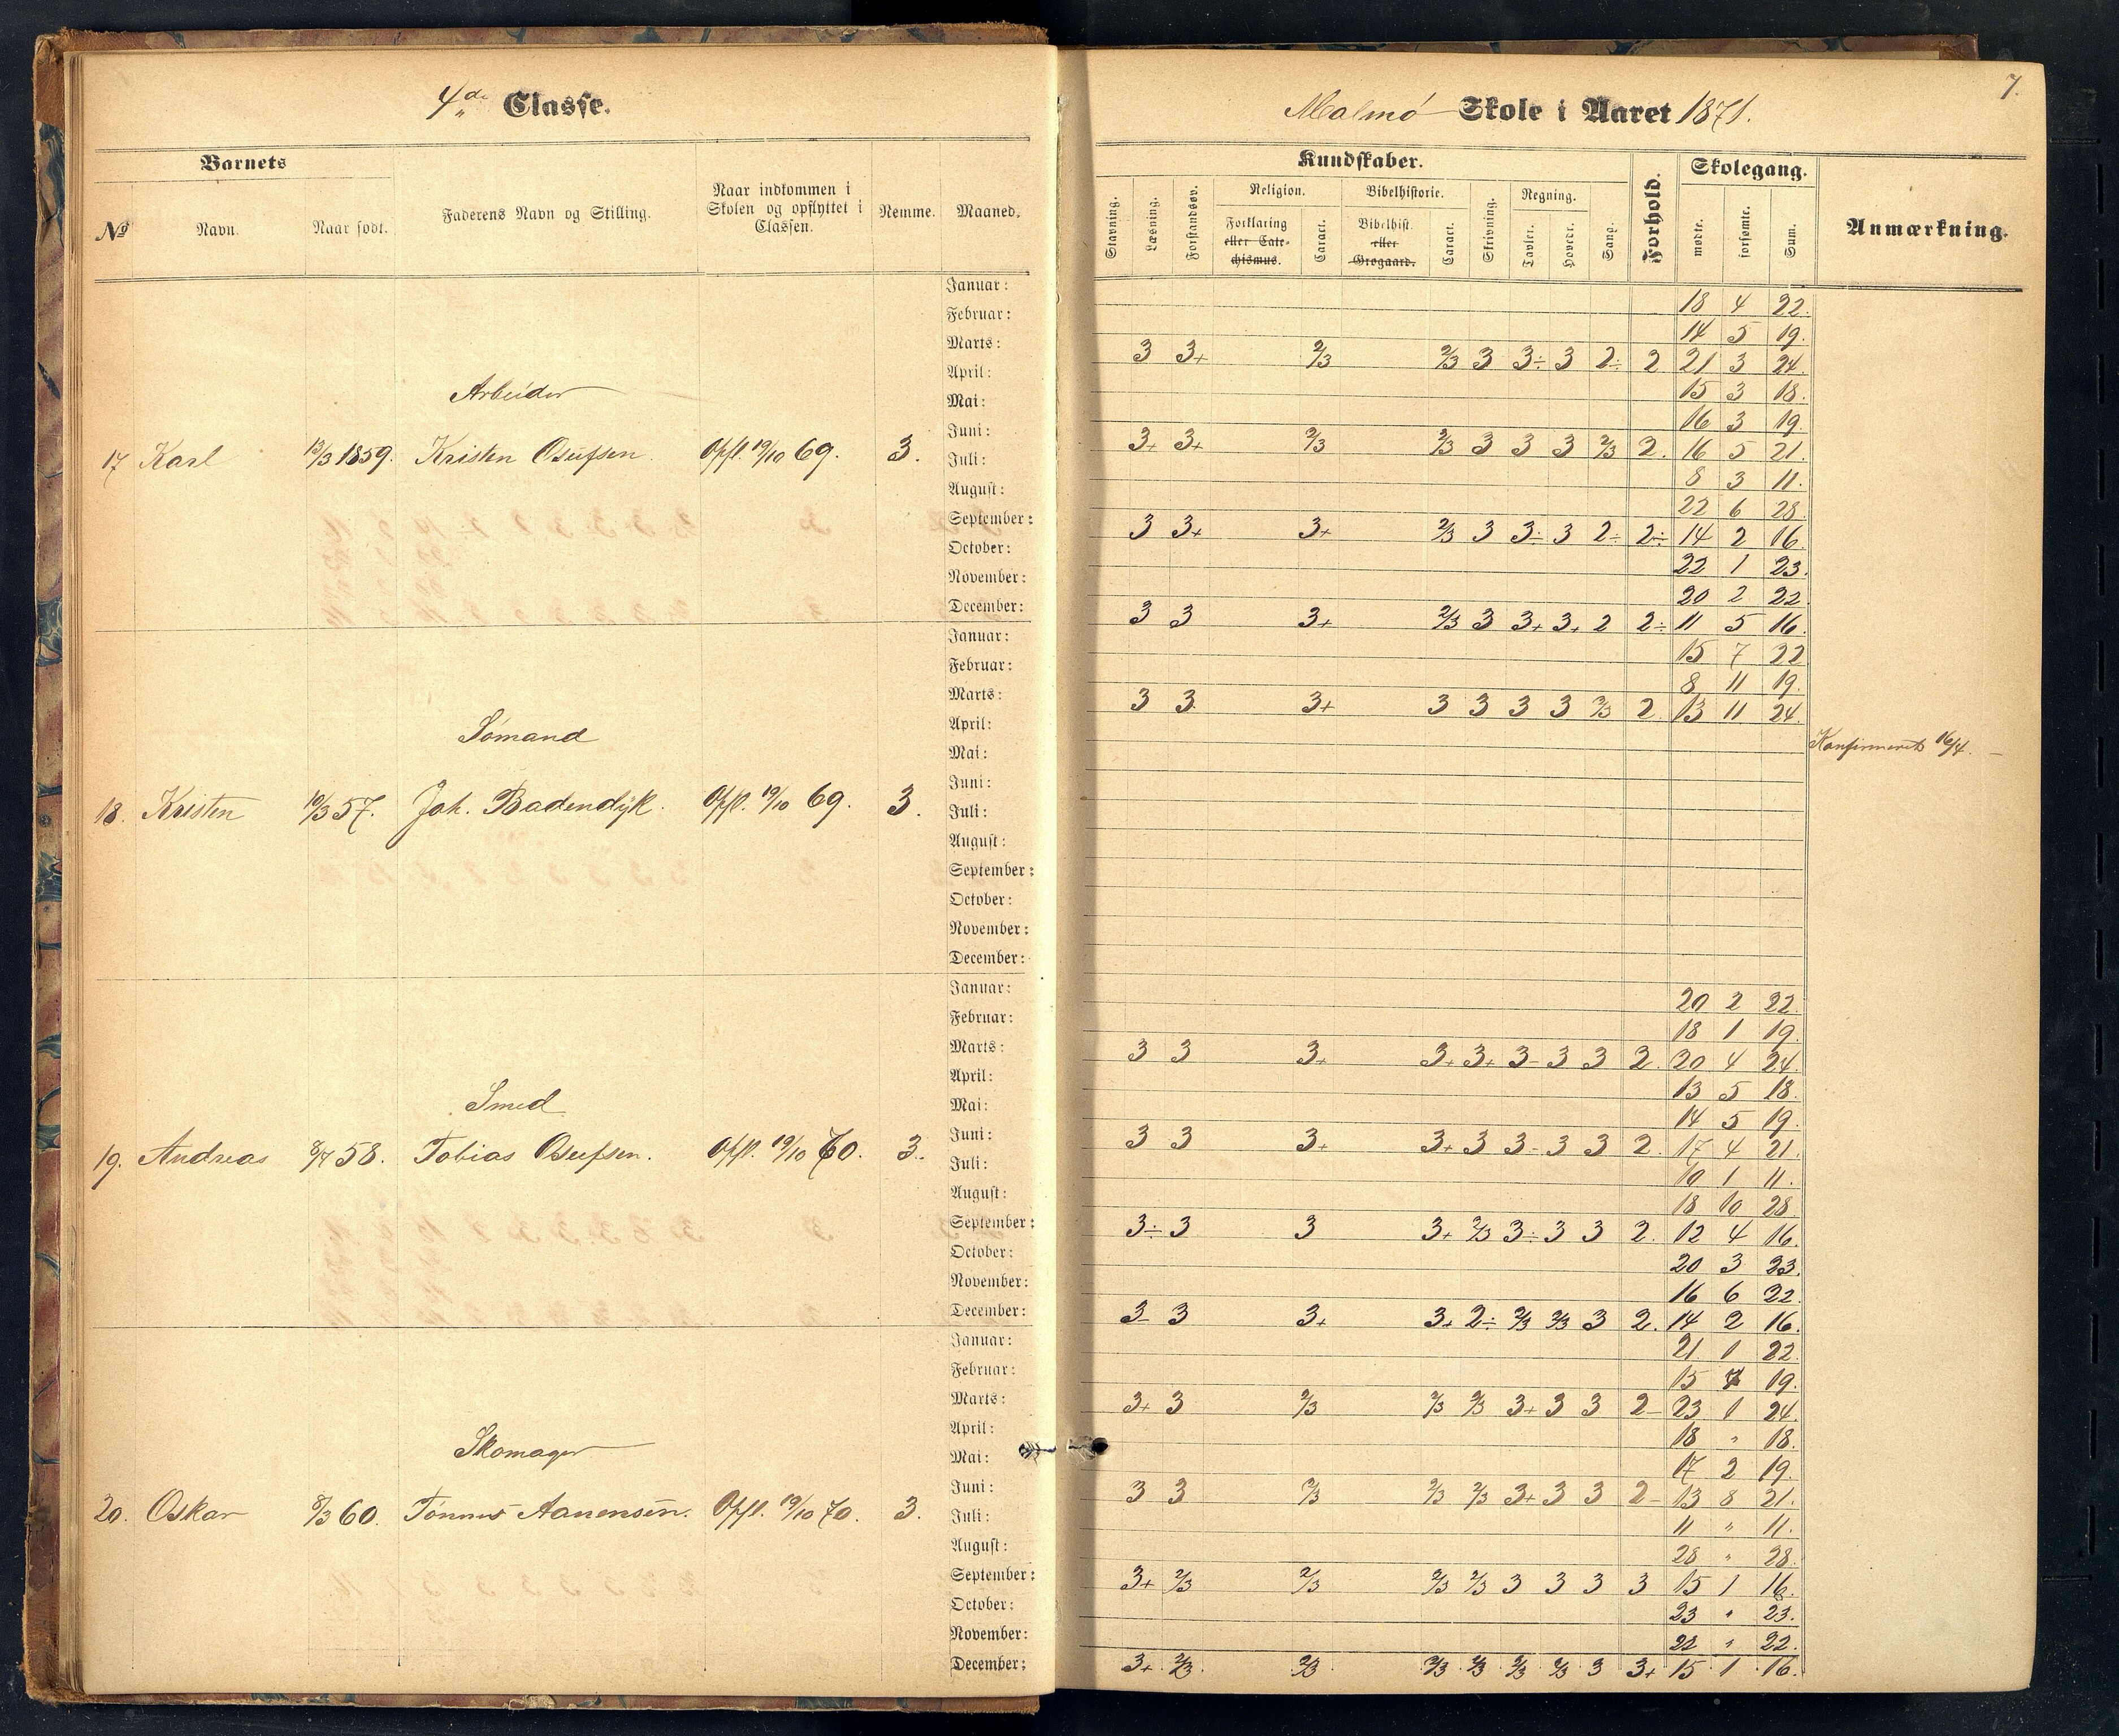 4de Classe.
Malmø Skole i Aaret 1871.
7.
Barnets
No
Navn.
Naar født.
Faderens Navn og Stilling.
Naar indkommen i Skolen og opflyttet i Classen.
Nemme.
Maaned.
Kundskaber.
Stavning.
Læsning.
Forstandsøv.
Religion.
Forklaring eller Catechismus.
Caract.
Bibelhistorie.
Bibelhist. eller Grøgaard.
Caract.
Skrivning.
Regning.
Tavler.
Hovedr.
Sang.
Forhold.
Skolegang.
mødte.
forsømte.
Sum.
Anmærkning.
Arbeider
17 Karl 13/3 1859. Kristen Osufsen. Opfl. 19/10 69. 3.
Januar: 18 4 22.
Februar: 14 5 19.
Marts: 3 3+ 2/3 2/3 3 3÷ 3 2÷ 2 21 3 24.
April: 15 3 18.
Mai: 16 3 19.
Juni: 3+ 3+ 2/3 2/3 3 3 3 2/3 2. 16 5 21.
Juli: 8 3 11.
August: 22 6 28.
September: 3 3+ 3+ 2/3 3 3÷ 3 2÷ 2÷ 14 2 16.
October: 22 1 23.
November: 20 2 22.
December: 3 3 3+ 2/3 3 3+ 3+ 2 2÷ 11 5 16.
Sømand
18. Kristen 10/3 57. Joh. Badendijk. Opfl. 19/10 69. 3.
Januar: 15 7 22
Februar: 8 11 19.
Marts: 3 3. 3+ 3 3 3 3 2/3 2. 13 11 24.
April: Konfirmeret 16/4. —
Mai:
Juni:
Juli:
August:
September:
October:
November:
December:
Smed
19. Andreas 8/4 58. Tobias Osufsen. Opfl. 19/10 70. 3.
Januar: 20 2 22.
Februar: 18 1 19.
Marts: 3 3 3+ 3+ 3+ 3- 3 3 2. 20 4 24.
April: 13 5 18.
Mai: 14 5 19.
Juni: 3 3 3+ 3+ 3 3- 3 3 2. 17 4 21.
Juli: 10 1 11.
August: 18 10 28.
September: 3÷ 3 3 3+ 2/3 3÷ 3 3 2. 12 4 16.
October: 20 3 23.
November: 16 6 22.
December: 3- 3 3+ 3+ 2÷ 2/3 2/3 3 2. 14 2 16.
Skomager
20. Oskar 8/3 60. Tønnes Aanensen. Opfl. 19/10 70. 3.
Januar: 21. 1 22.
Februar: 15 4 19.
Marts: 3+ 3 2/3 2/3 2/3 3+ 3 3 2- 23 1 24.
April: 18 " 18.
Mai: 17 2 19.
Juni: 3 3 2/3 2/3 2/3 3+ 3 3 2- 13 8 21.
Juli: 11 " 11.
August: 28 " 28.
September: 3+ 2/3 2/3 2/3 2/3 3 3 3 3 15 1 16.
October: 23 " 23.
November: 22 " 22.
December: 3+ 2/3. 2/3 2/3 2/3 2/3 2/3 3 3+ 15 1 16.